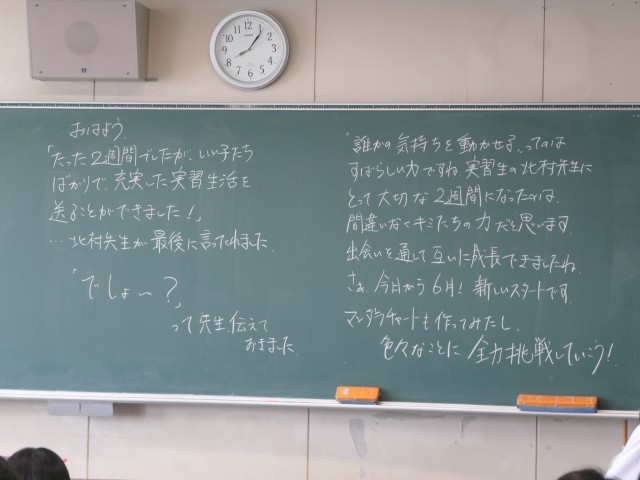 おはよう.
「たった2週間でしたが、いい子たち
ばかりで、充実した実習生活を
送ることができました!」
…北村先生が最後に言ってくれました.
「でしょ〜?」
って先生、伝えて
おきました.
"誰かの気持ちを動かせる、ってのは
すばらしい力ですね 実習生の北村先生に
とって大切な2週間になったのは.
間違いなくキミたちの力だと思います
出会いを通して互いに成長できましたね.
さぁ、今日から6月! 新しいスタートです.
マンダラチャートも作ってみたし.
色々なことに全力挑戦していこう!
12
1
2
3
4
5
6
7
8
9
10
11